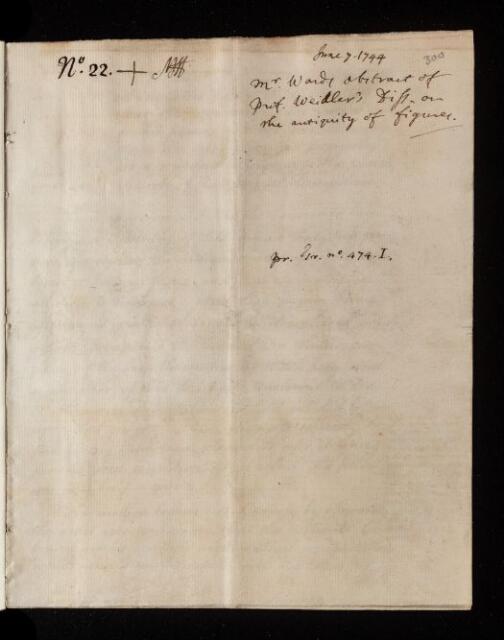 No. 22. +
June 7. 1744
300
Mr. Wards abstract of
Prof. Weidler's Diss. on
the antiquity of figures.
pr. no. 474. I.